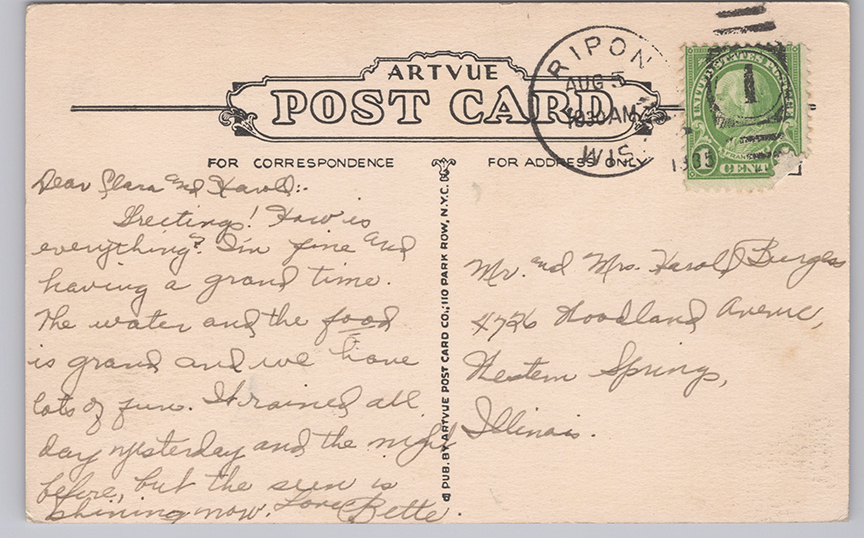 ARTVUE
POST CARD
RIPON
AUG 5
1030 AM
WIS.
1935
UNITED STATES POSTAGE
1
CENT
FOR CORRESPONDENCE
FOR ADDRESS ONLY
Dear Clara and Harold:-
Greetings! How is
everything? I'm fine and
having a grand time.
The water and the food
is grand and we have
lots of fun. It rained all
day yesterday and the night
before, but the sun is
shining now. Love Bette.
PUB. BY ARTVUE POST CARD CO., 110 PARK ROW, N.Y.C.
Mr. and Mrs. Harold Burgess
4726 Woodland Avenue,
Western Springs,
Illinois.